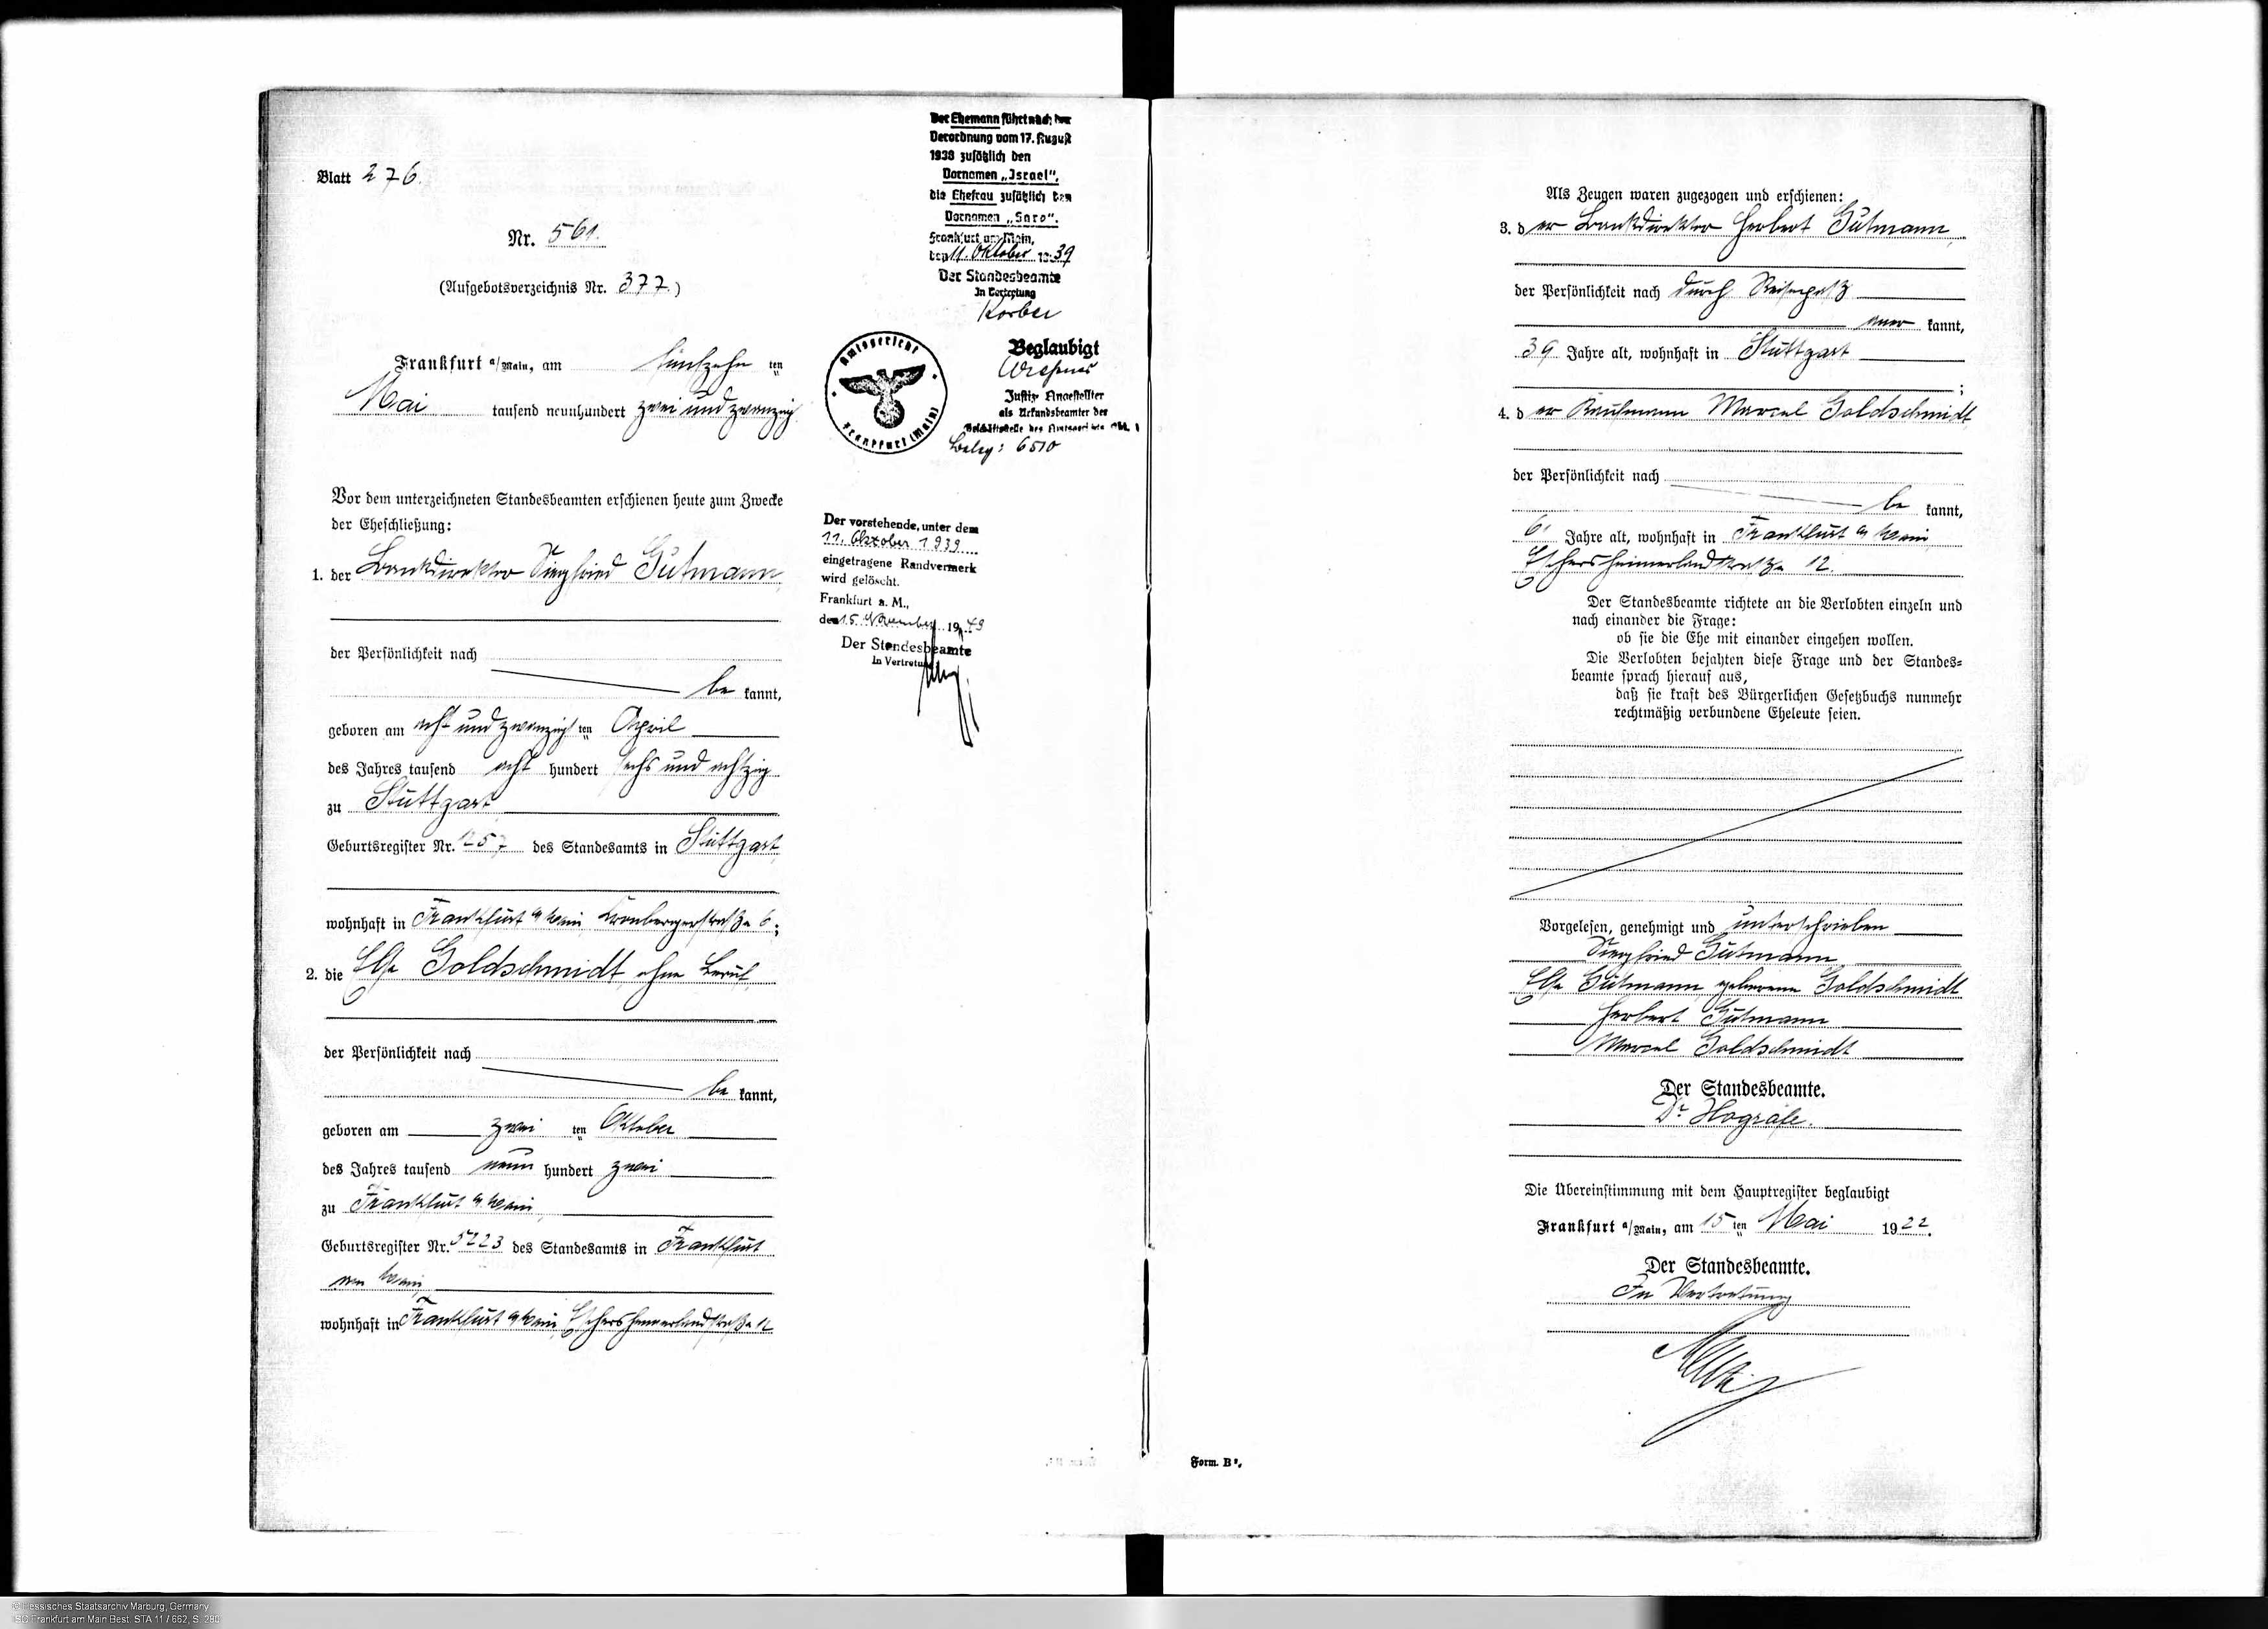 Blatt 276.
Nr. 561.
(Aufgebotsverzeichnis Nr. 377.)
Frankfurt a/Main, am fünfzehn ten
Mai tausend neunhundert zwei und zwanzig
Vor dem unterzeichneten Standesbeamten erschienen heute zum Zwecke
der Eheschließung:
1. der Bankdirektor Siegfried Gutmann,
der Persönlichkeit nach
be kannt,
geboren am acht und zwanzig ten April
des Jahres tausend acht hundert sechs und achtzig
zu Stuttgart
Geburtsregister Nr. 1257 des Standesamts in Stuttgart
wohnhaft in Frankfurt a/Main, Cronbergerstraße 6;
2. die Else Goldschmidt, ohne Beruf,
der Persönlichkeit nach
be kannt,
geboren am zwei ten Oktober
des Jahres tausend neun hundert zwei
zu Frankfurt a/Main,
Geburtsregister Nr. 5223 des Standesamts in Frankfurt
am Main,
wohnhaft in Frankfurt a/Main, Eschersheimerlandstraße 12
Der Ehemann führt nach der
Verordnung vom 17. August
1938 zusätzlich den
Vornamen „Israel“,
die Ehefrau zusätzlich den
Vornamen „Sara“.
Frankfurt am Main,
den 11. Oktober 1939
Der Standesbeamte
In Vertretung
Korber
Amtsgericht
Frankfurt (Main)
Beglaubigt
Justiz-Angestellter
als Urkundsbeamter der
Geschäftsstelle des Amtsgerichts Abt. 1
Beleg: 6510
Der vorstehende, unter dem
11. Oktober 1939
eingetragene Randvermerk
wird gelöscht.
Frankfurt a. M.,
den 15. November 1949
Der Standesbeamte
In Vertretung
Als Zeugen waren zugezogen und erschienen:
3. d er Bankdirektor Herbert Gutmann,
der Persönlichkeit nach durch Reisepaß
aner kannt,
39 Jahre alt, wohnhaft in Stuttgart
;
4. d er Kaufmann Marcel Goldschmidt,
der Persönlichkeit nach
be kannt,
61 Jahre alt, wohnhaft in Frankfurt a/Main,
Eschersheimerlandstraße 12.
Der Standesbeamte richtete an die Verlobten einzeln und
nach einander die Frage:
ob sie die Ehe mit einander eingehen wollen.
Die Verlobten bejahten diese Frage und der Standes=
beamte sprach hierauf aus,
daß sie kraft des Bürgerlichen Gesetzbuchs nunmehr
rechtmäßig verbundene Eheleute seien.
Vorgelesen, genehmigt und unterschrieben
Siegfried Gutmann
Else Gutmann geborene Goldschmidt
Herbert Gutmann
Marcel Goldschmidt
Der Standesbeamte.
Dr. Hogräfe.
Die Übereinstimmung mit dem Hauptregister beglaubigt
Frankfurt a/Main, am 15 ten Mai 1922.
Der Standesbeamte.
In Vertretung
Form. B².
© Hessisches Staatsarchiv Marburg, Germany
ISG Frankfurt am Main Best. STA 11 / 662, S. 280